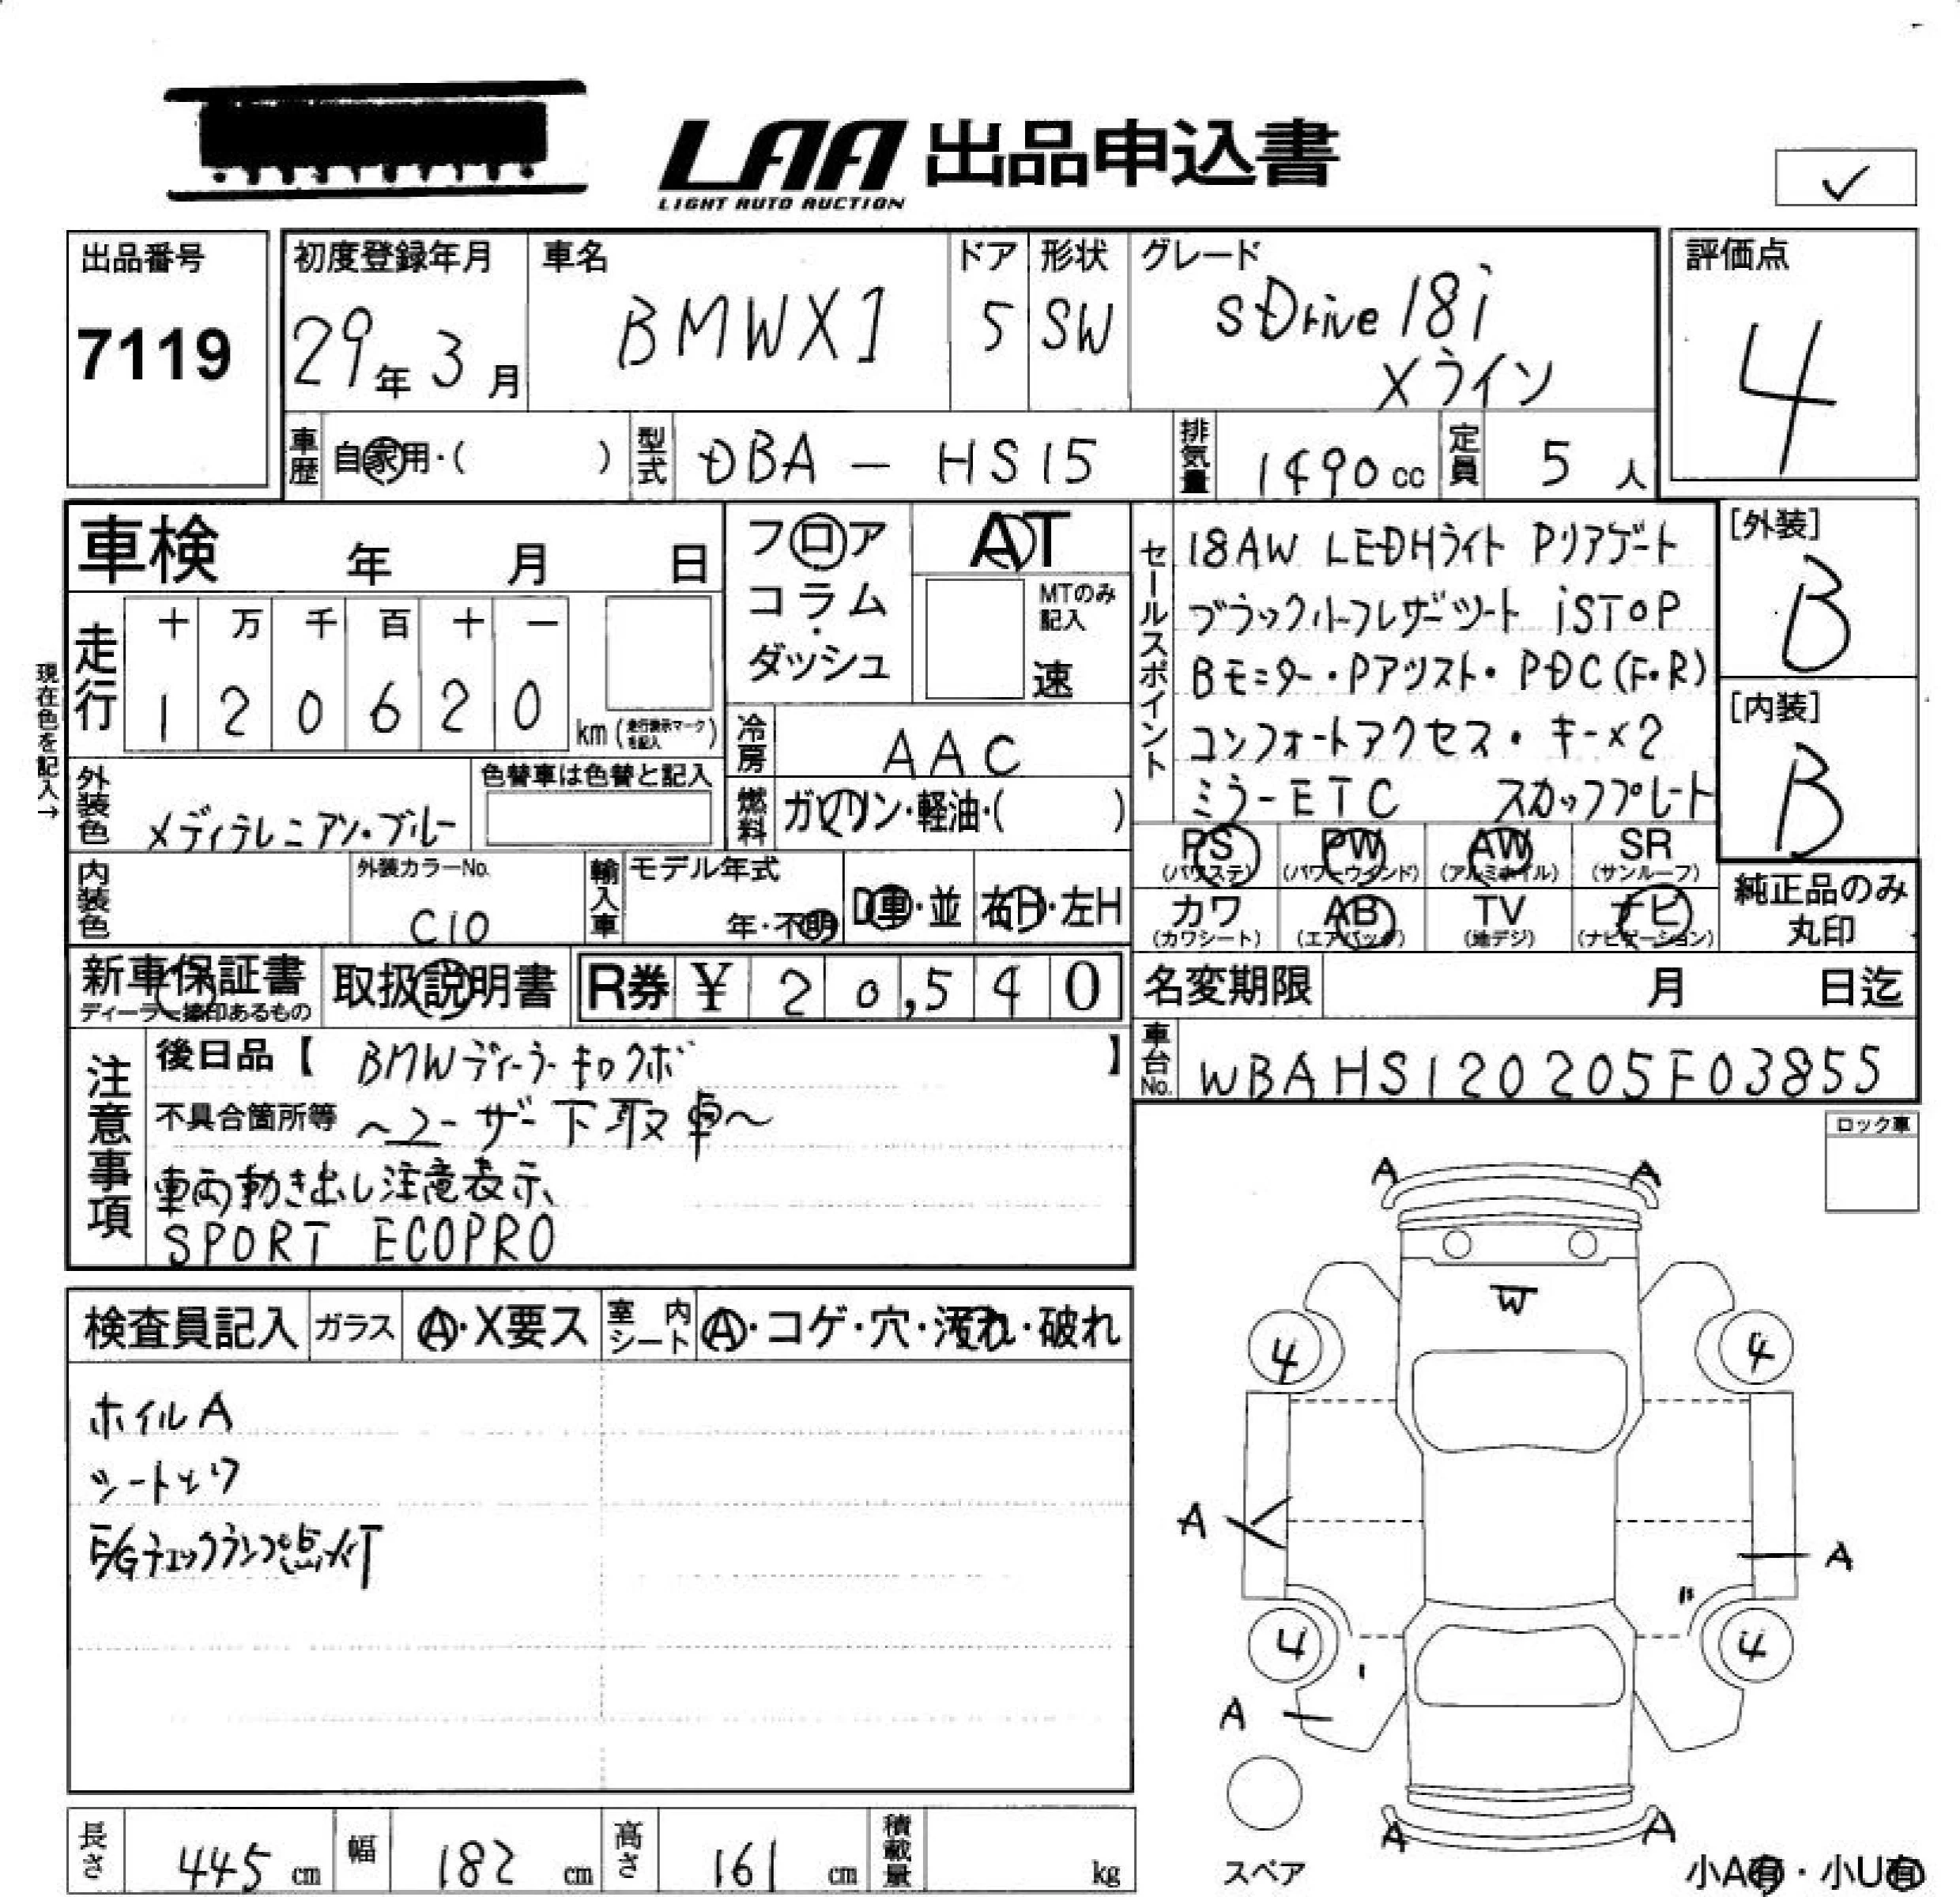 LAA 出品申込書
LIGHT AUTO AUCTION
✓
出品番号
7119
初度登録年月
29年 3月
車名
BMWX1
ドア
5
形状
SW
グレード
sDrive18i
Xライン
評価点
4
車歴 自家用・( )
型式 DBA - HS15
排気量 1490cc
定員 5人
車検 年 月 日
走行
十 万 千 百 十 一
1 2 0 6 2 0
km (走行表示マークを記入)
現在色を記入→
外装色 メディテレニアン・ブルー
色替車は色替と記入
フロア
コラム
・
ダッシュ
AT
MTのみ記入
速
冷房 AAC
燃料 ガソリン・軽油・( )
セールスポイント
18AW LEDHライト Pリアゲート
ブラックハーフレザーシート iSTOP
Bモニター・Pアシスト・PDC(F・R)
コンフォートアクセス・キー×2
ミラーETC スカッフプレート
[外装]
B
[内装]
B
内装色
外装カラーNo.
C10
輸入車
モデル年式
年・不明
D車・並
右H・左H
PS (パワステ)
PW (パワーウインド)
AW (アルミホイル)
SR (サンルーフ)
カワ (カワシート)
AB (エアバック)
TV (地デジ)
ナビ (ナビゲーション)
純正品のみ
丸印
新車保証書
ディーラー捺印あるもの
取扱説明書
R券 ¥ 20,540
名変期限 月 日迄
車台No. WBAHS120205F03855
注意事項
後日品【 BMWディーラーキロクボ 】
不具合箇所等 〜ユーザー下取車〜
車両動き出し注意表示、
SPORT ECOPRO
ロック車
検査員記入
ガラス A・X要ス
室内シート A・コゲ・穴・汚れ・破れ
ホイルA
シートヨゴ
E/Gチェックランプ点灯
A A
W
4 4
A
A
4 4
A
A A
スペア
小A有・小U有
長さ 445cm
幅 182cm
高さ 161cm
積載量 kg